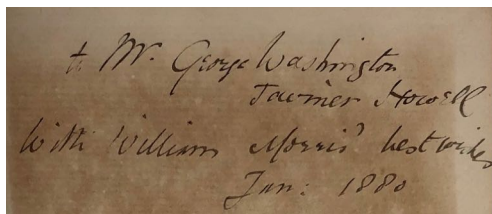 to Mr. George Washington
Tavener Howell
With William Morris' best wishes
Jan: 1880